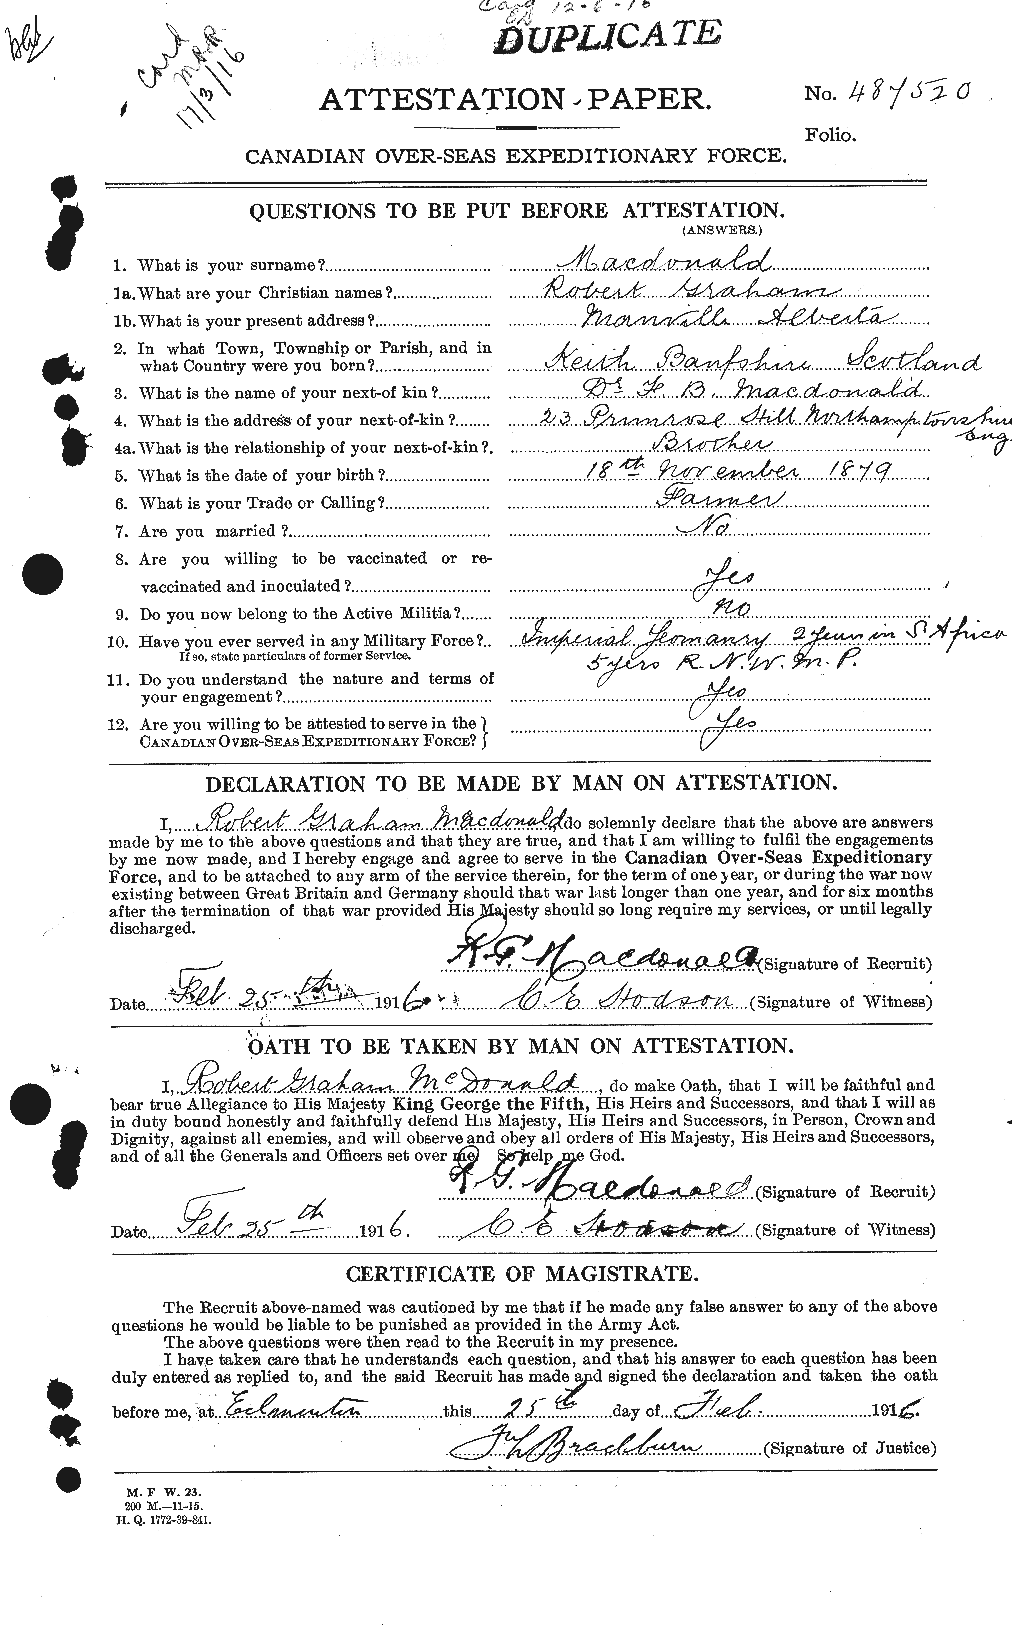 Card 12-6-16
DUPLICATE
Card
M.R.R.
17/3/16
ATTESTATION PAPER.
No. 487520
Folio.
CANADIAN OVER-SEAS EXPEDITIONARY FORCE.
QUESTIONS TO BE PUT BEFORE ATTESTATION.
(ANSWERS.)
1. What is your surname? Macdonald
1a. What are your Christian names? Robert Graham
1b. What is your present address? Manville Alberta
2. In what Town, Township or Parish, and in
what Country were you born? Keith Banfshire Scotland
3. What is the name of your next-of kin? Dr F. B. Macdonald
4. What is the address of your next-of-kin? 23 Primrose Hill Northamptonshire
Eng
4a. What is the relationship of your next-of-kin? Brother
5. What is the date of your birth? 18th November 1879
6. What is your Trade or Calling? Farmer
7. Are you married? No
8. Are you willing to be vaccinated or re-
vaccinated and inoculated? Yes
9. Do you now belong to the Active Militia? no
10. Have you ever served in any Military Force? Imperial Yeomanry 2 Years in S. Africa
If so, state particulars of former Service. 5 yers R. N. W. M. P.
11. Do you understand the nature and terms of
your engagement? Yes
12. Are you willing to be attested to serve in the } Yes
CANADIAN OVER-SEAS EXPEDITIONARY FORCE?
DECLARATION TO BE MADE BY MAN ON ATTESTATION.
I, Robert Graham Macdonald do solemnly declare that the above are answers
made by me to the above questions and that they are true, and that I am willing to fulfil the engagements
by me now made, and I hereby engage and agree to serve in the Canadian Over-Seas Expeditionary
Force, and to be attached to any arm of the service therein, for the term of one year, or during the war now
existing between Great Britain and Germany should that war last longer than one year, and for six months
after the termination of that war provided His Majesty should so long require my services, or until legally
discharged.
R. G. Macdonald (Signature of Recruit)
Date Feb. 25th 1916 C E Hodson (Signature of Witness)
OATH TO BE TAKEN BY MAN ON ATTESTATION.
I, Robert Graham McDonald, do make Oath, that I will be faithful and
bear true Allegiance to His Majesty King George the Fifth, His Heirs and Successors, and that I will as
in duty bound honestly and faithfully defend His Majesty, His Heirs and Successors, in Person, Crown and
Dignity, against all enemies, and will observe and obey all orders of His Majesty, His Heirs and Successors,
and of all the Generals and Officers set over me. So help me God.
R G. Macdonald (Signature of Recruit)
Date Feb 25th 1916. C E Hodson (Signature of Witness)
CERTIFICATE OF MAGISTRATE.
The Recruit above-named was cautioned by me that if he made any false answer to any of the above
questions he would be liable to be punished as provided in the Army Act.
The above questions were then read to the Recruit in my presence.
I have taken care that he understands each question, and that his answer to each question has been
duly entered as replied to, and the said Recruit has made and signed the declaration and taken the oath
before me, at Edmonton this 25th day of Feb. 1916.
Brachburn (Signature of Justice)
M. F. W. 23.
200 M.—11-15.
H. Q. 1772-39-841.